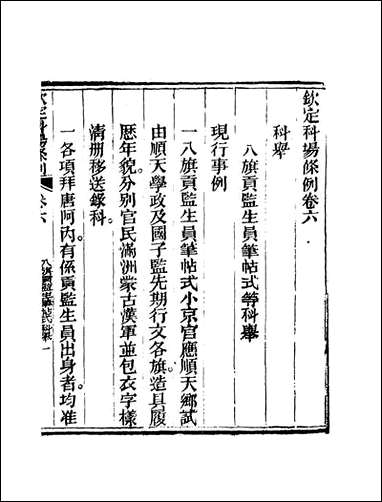 欽定科場條例卷六
科舉
八旗貢監生員筆帖式等科舉
現行事例
一八旗貢監生員筆帖式小京官應順天鄉試
由順天學政及國子監先期行文各旗造具履
歷年貌分別官民滿洲蒙古漢軍並包衣字樣
清册移送錄科。
一各項拜唐阿內有係貢監生員出身者均准
欽定科場條例
卷六
一